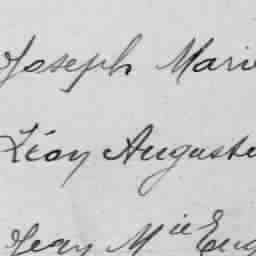 Joseph Mari
Léon Auguste
Jean Mie Eug